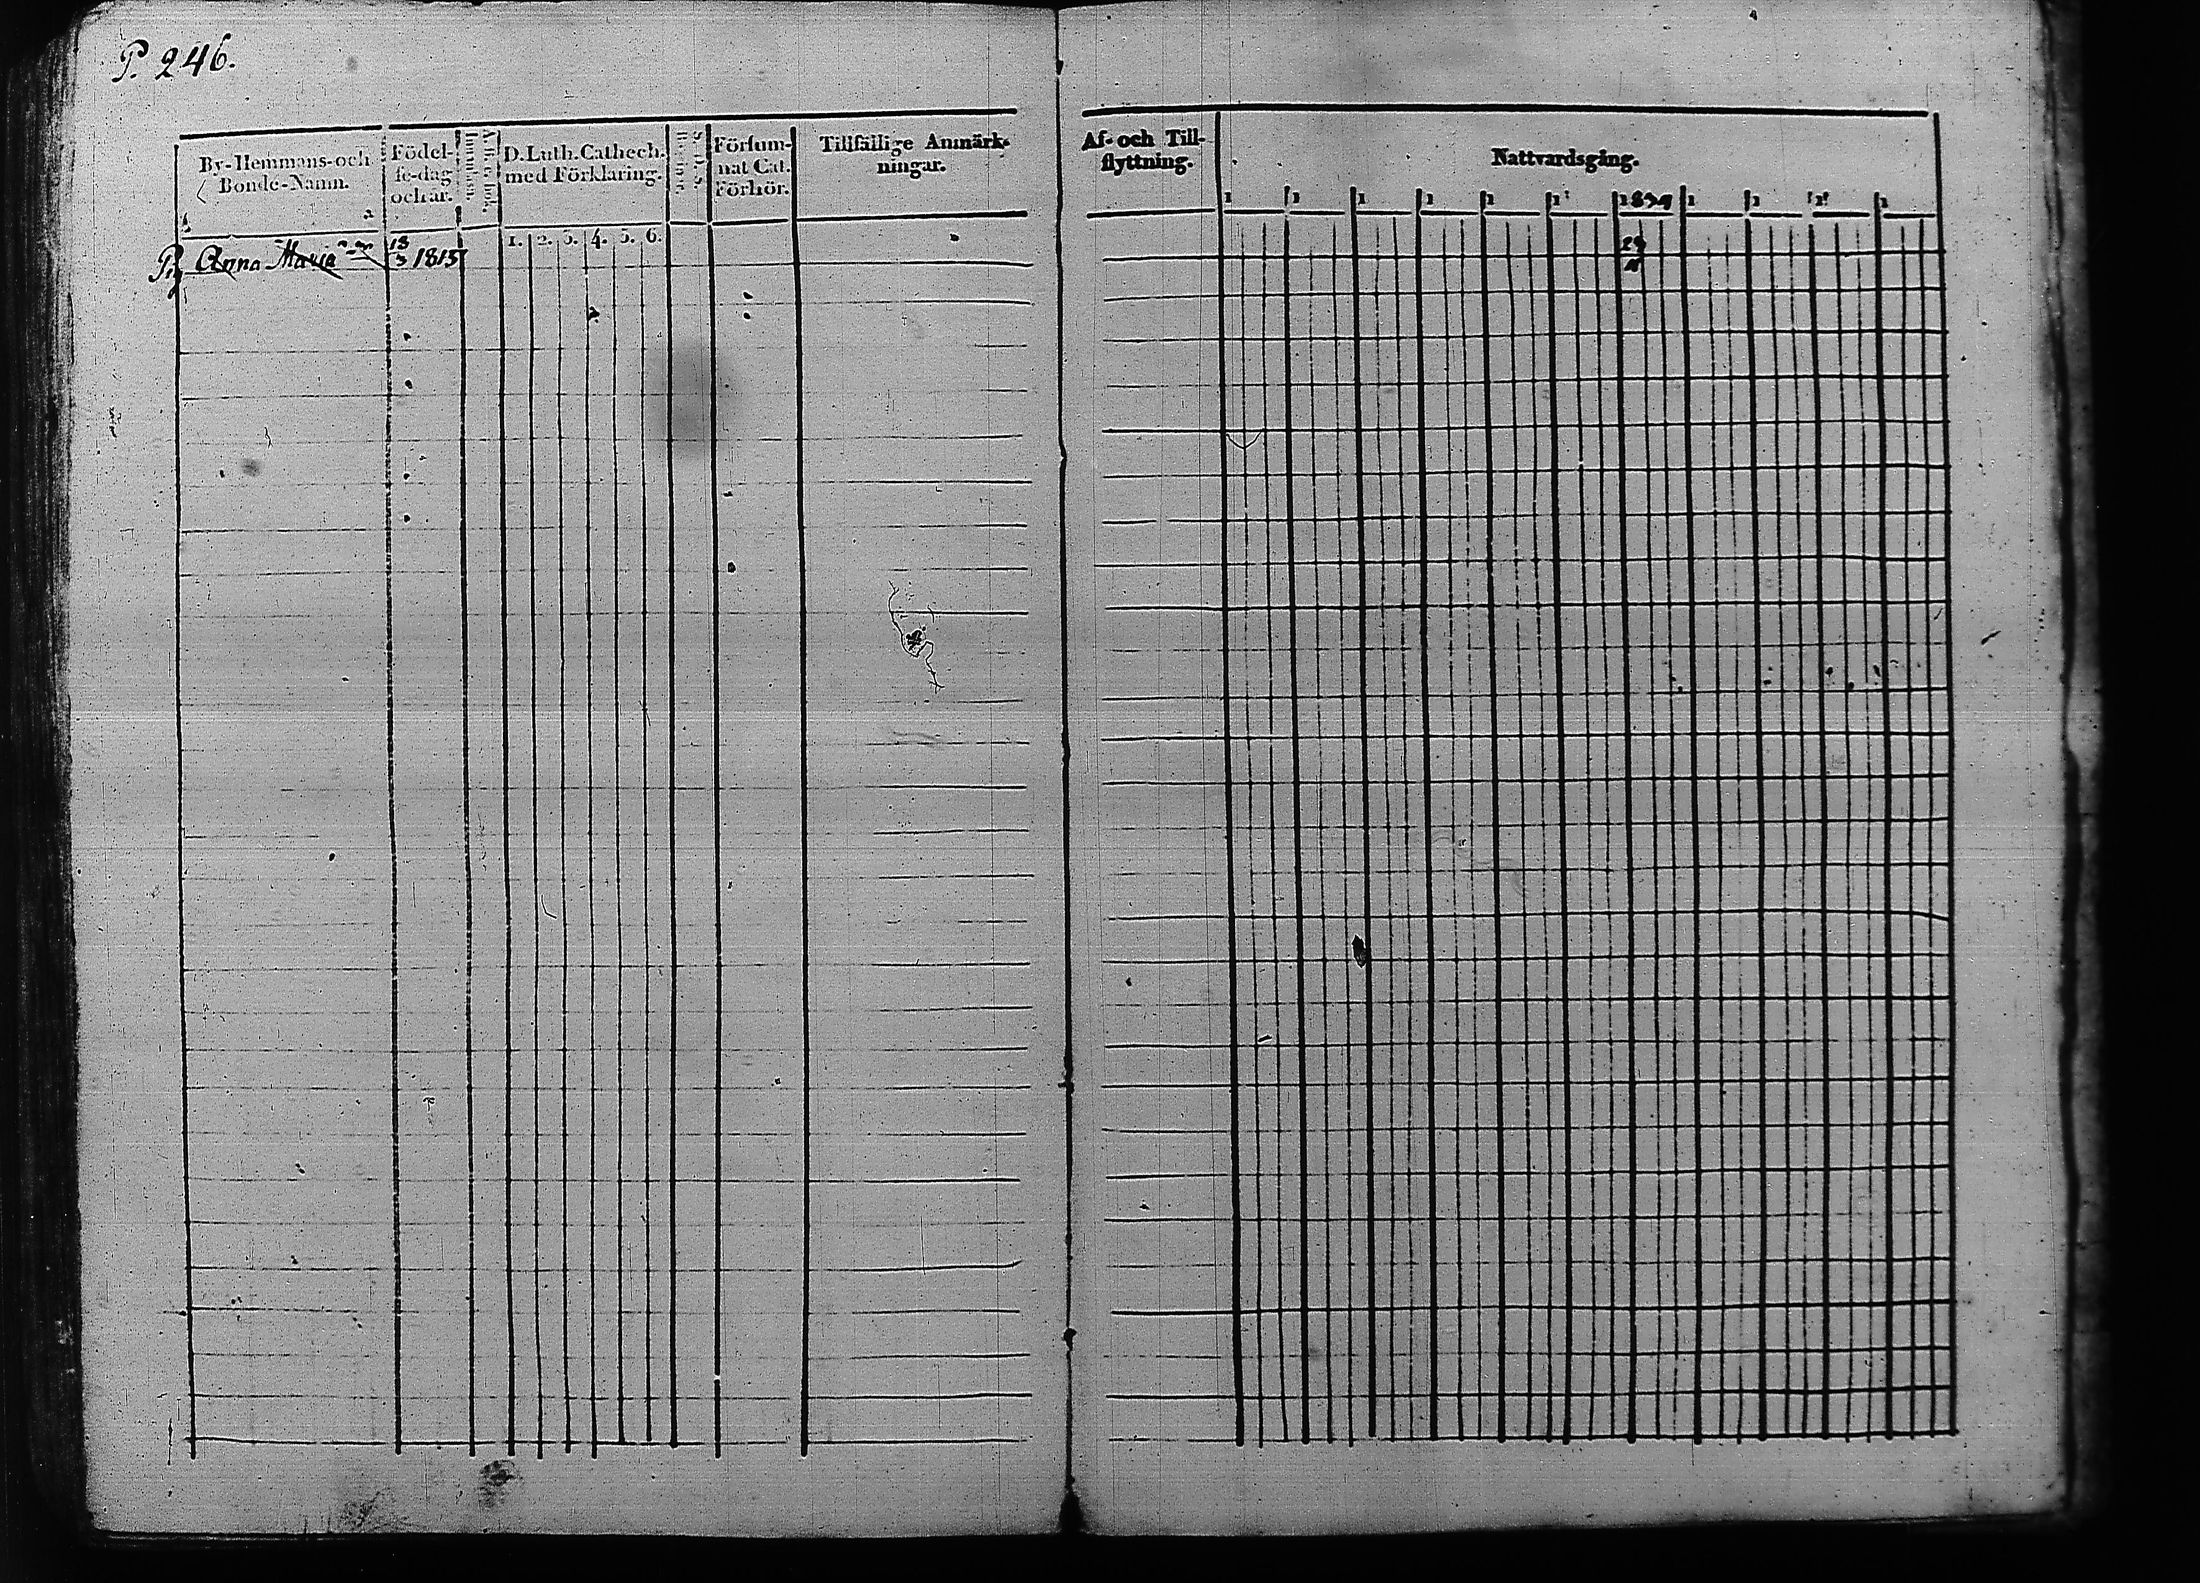 P. 246.
By-Hemmans-och
Bonde-Namn.
Födel-
se-dag
och år.
D. Luth. Cathech.
med Förklaring.
Försum-
nat Cat.
Förhör.
Tillfällige Anmärk-
ningar.
1. 2. 3. 4. 5. 6.
Pig Anna Maria 18/3 1815
Af- och Till-
flyttning.
Nattvardsgång.
1 1 1 1 1 1 1 1 1 1